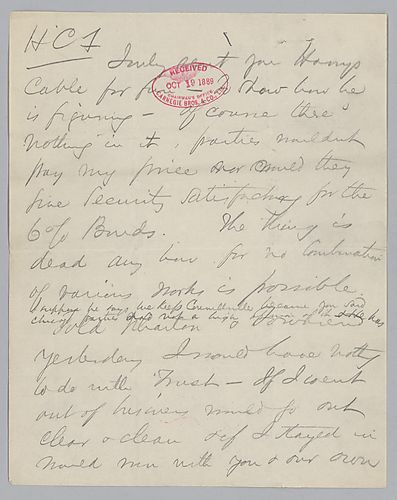 H C F
I only sent you Harry's
Cable for fun to show how he
RECEIVED
OCT 19 1889
CHAIRMAN'S OFFICE
CARNEGIE BROS. & CO.
is figuring – of course there's
nothing in it, parties wouldn't
pay my price nor could they
give security satisfactory for the
6% Bonds. The thing is
dead any how for no Combination
of various works is possible.
I suppose he says we keep because you said
parties had a high opinion of the
told Wharton
yesterday I would have nothg
to do with Trust – If I went
out of business would go out
clear & clean & if I stayed in
would run with you & our own